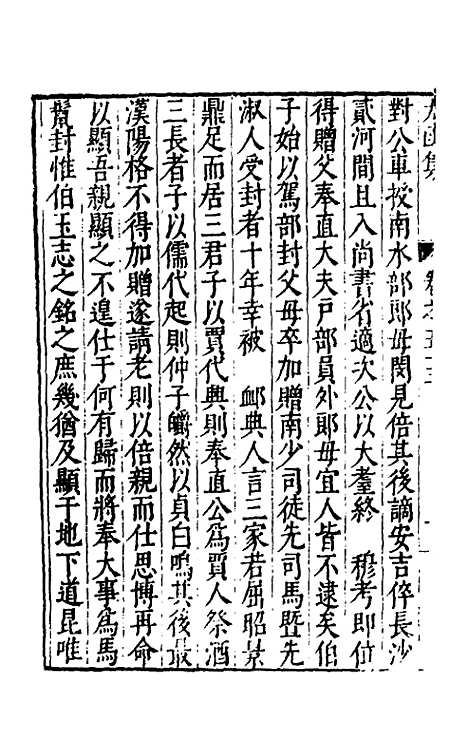 太函集　卷之五十三
對公車授南水部郎毋閔見倍其後謫安吉倅長沙
貳河間且入尚書省適次公以大耋終　穆考即位
得贈父奉直大夫戶部員外郎毋宜人皆不逮矣伯
子始以駕部封父毋卒加贈南少司徒先司馬暨先
淑人受封者十年幸被　卹典人言三家若屈昭景
鼎足而居三君子以賈代興則奉直公爲賈人祭酒
三長者子以儒代起則仲子皭然以貞白鳴其後最
漢陽格不得加贈遂請老則以倍親而仕思博再命
以顯吾親顯之不遑仕于何有歸而將奉大事爲馬
鬛封惟伯玉志之銘之庶幾猶及顯于地下道昆唯